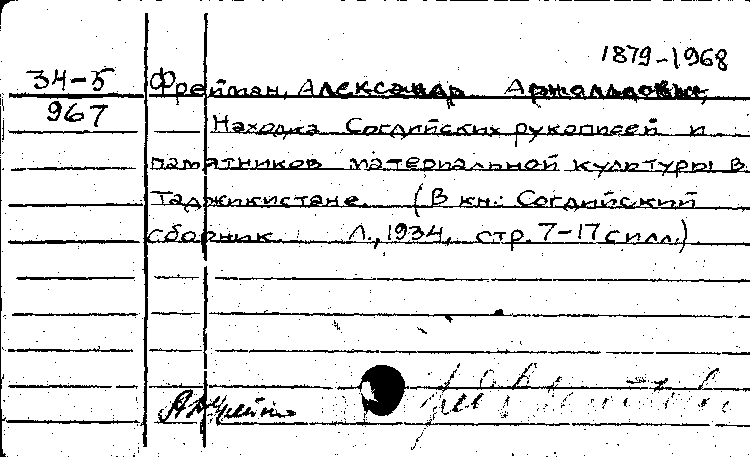 1879-1968
34-5
967
Фрейман, Александр Арнольдович,
Находка Согдийских рукописей и
памятников материальной культуры в
Таджикистане. (В кн.: Согдийский
сборник. Л., 1934, стр. 7-17 с илл.)